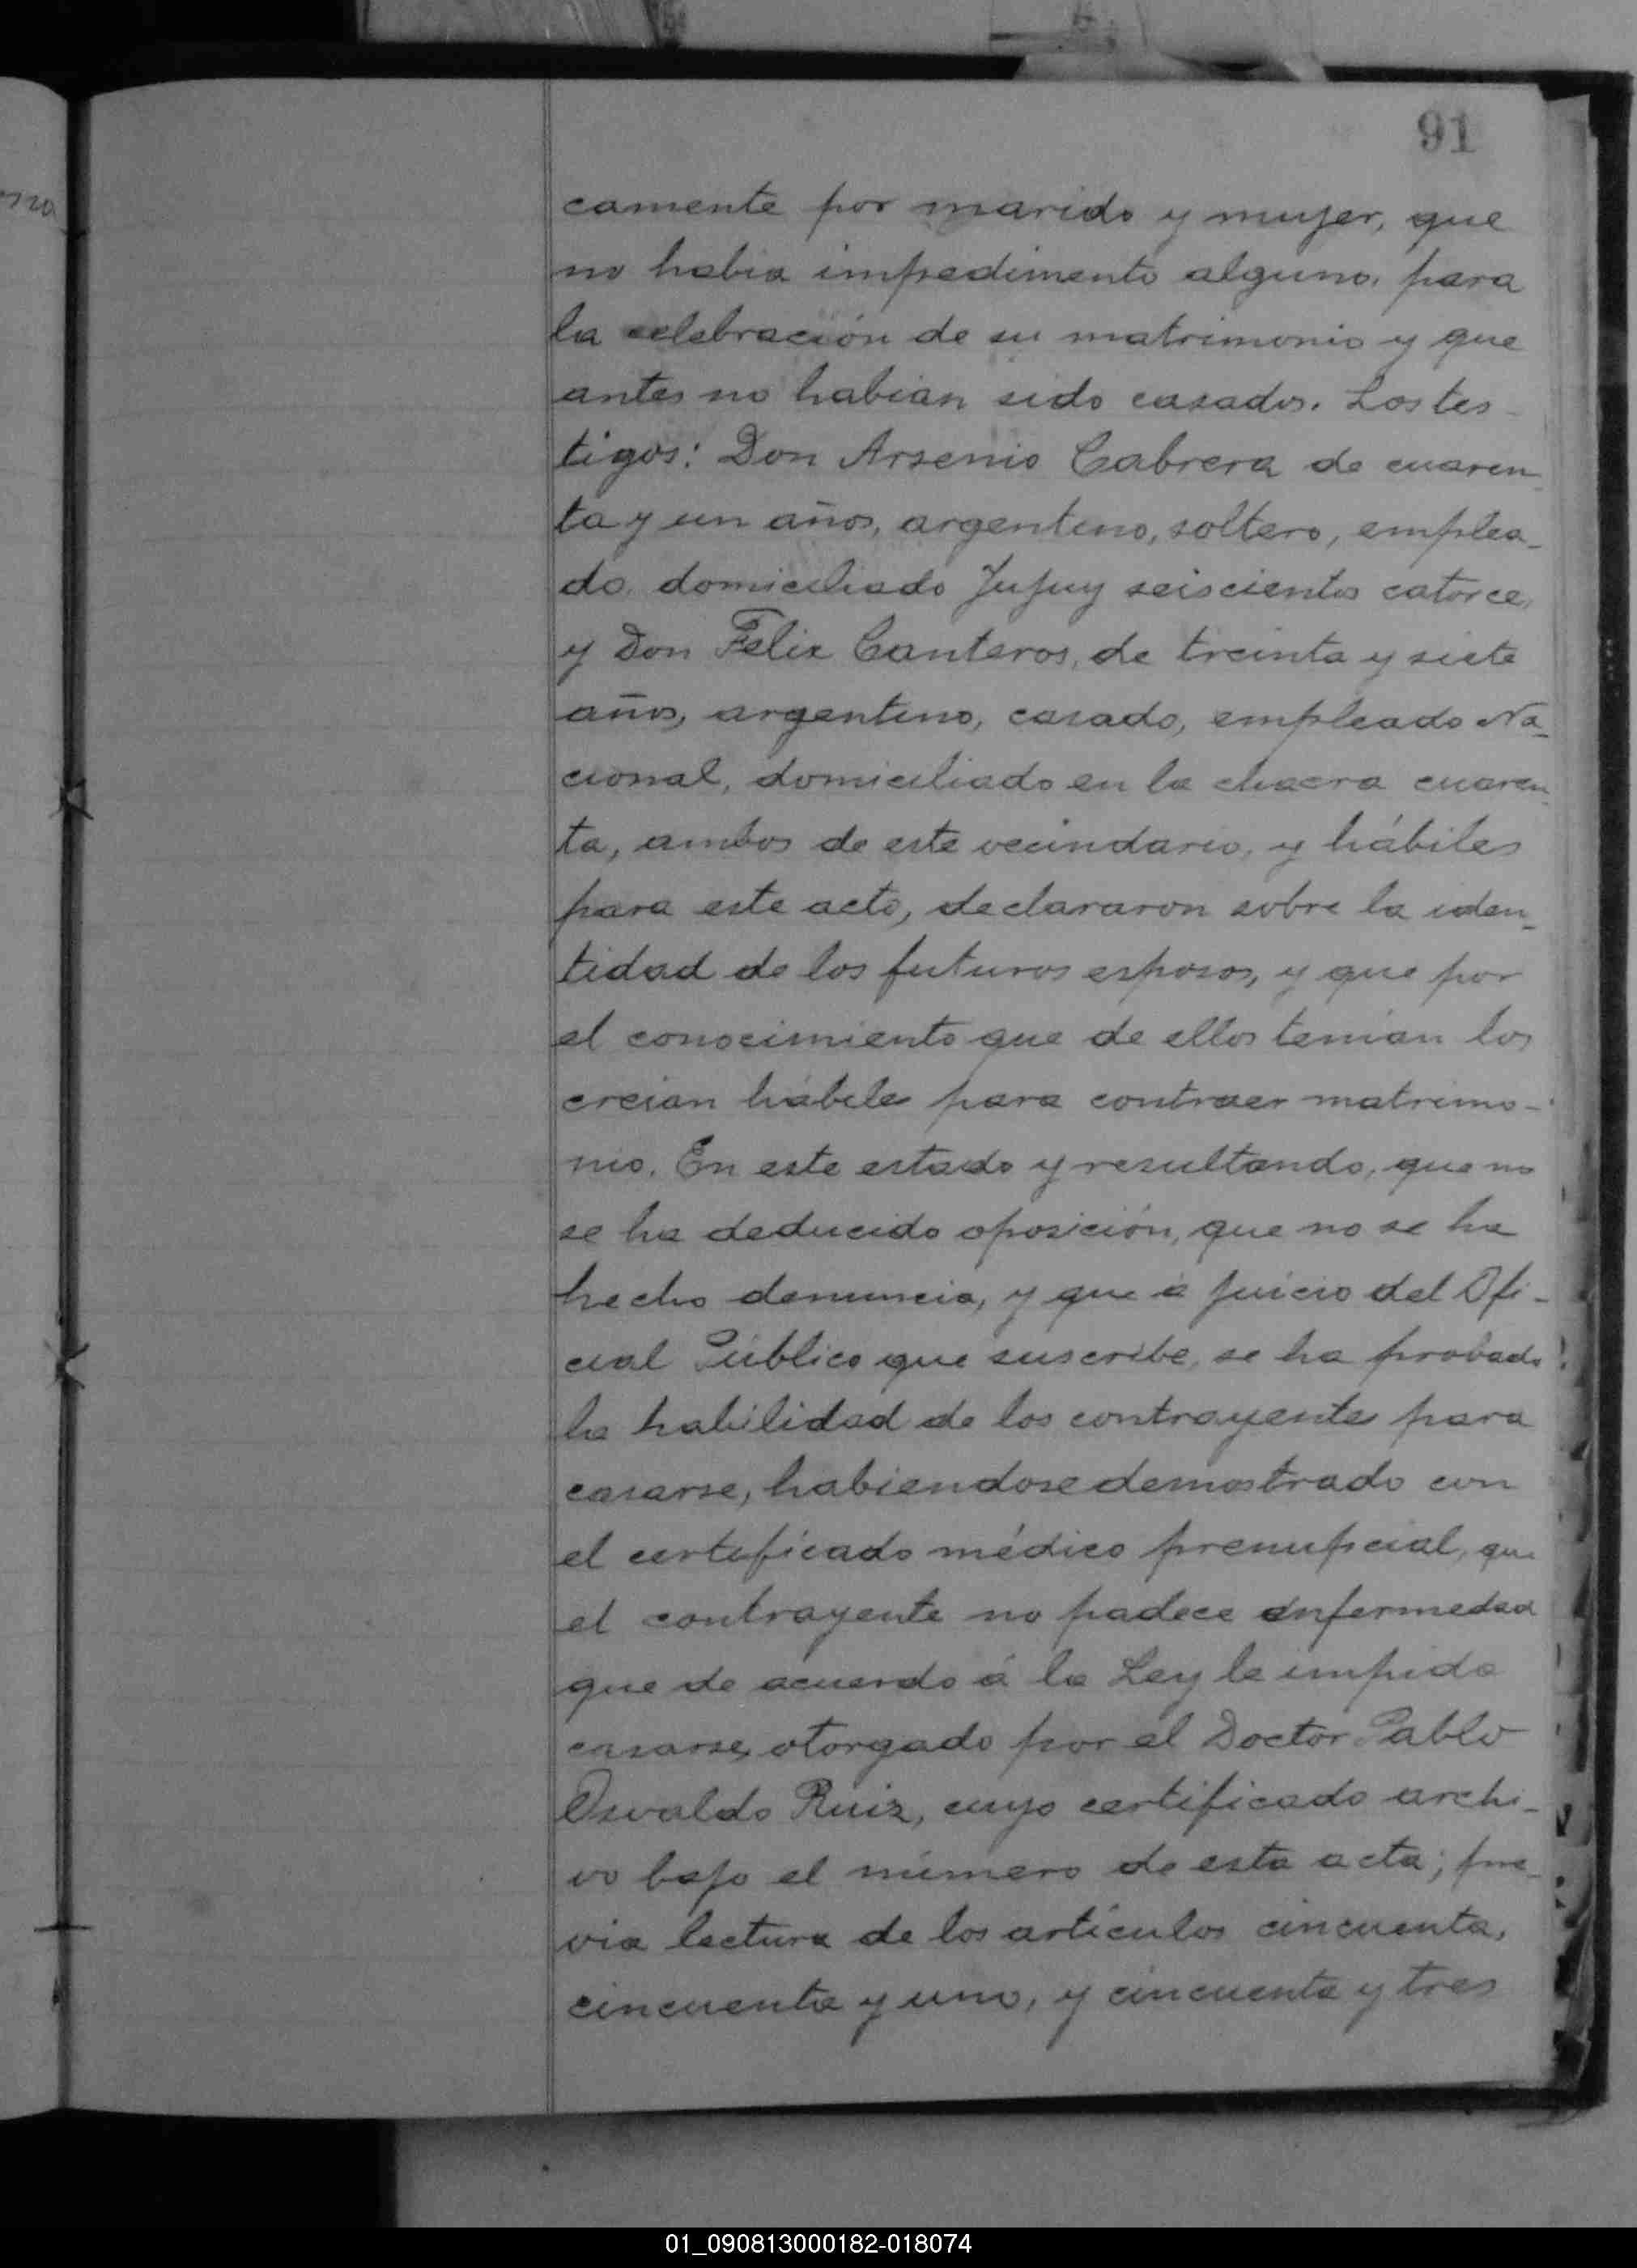 91
camente por marido y mujer, que
no habia impedimento alguno, para
la celebración de su matrimonio y que
antes no habian sido casados. Los tes-
tigos: Don Arsenio Cabrera de cuaren-
ta y un años, argentino, soltero, emplea-
do, domiciliado Jujuy seiscientos catorce,
y Don Felix Canteros, de treinta y siete
años, argentino, casado, empleado Na-
cional, domiciliado en la chacra cuaren-
ta, ambos de este vecindario, y hábiles
para este acto, declararon sobre la iden-
tidad de los futuros esposos, y que por
el conocimiento que de ellos tenian los
creian hábiles para contraer matrimo-
nio. En este estado y resultando, que no
se ha deducido oposición, que no se ha
hecho denuncia, y que á juicio del Ofi-
cial Público que suscribe, se ha probado
la habilidad de los contrayentes para
casarse, habiendose demostrado con
el certificado médico prenupcial, que
el contrayente no padece enfermedad
que de acuerdo á la Ley le impida
casarse, otorgado por el Doctor Pablo
Osvaldo Ruiz, cuyo certificado archi-
vo bajo el número de esta acta; pre-
via lectura de los artículos cincuenta,
cincuenta y uno, y cincuenta y tres
01_090813000182-018074